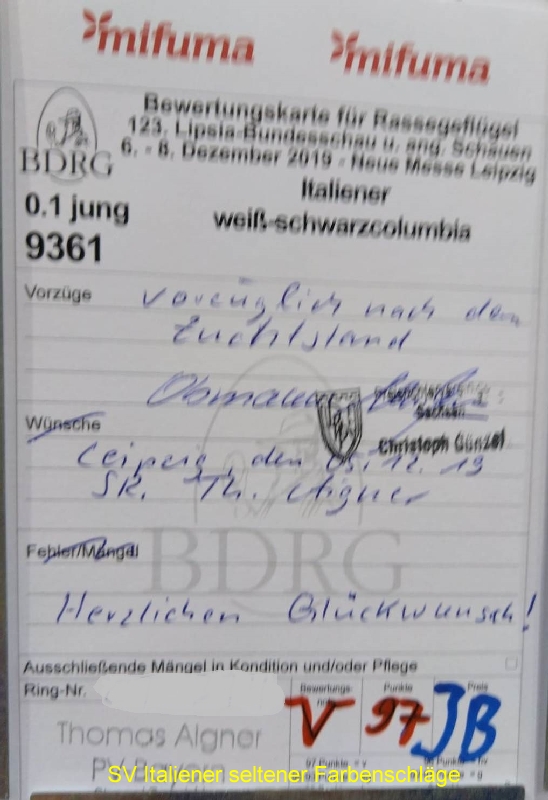 mifuma mifuma
Bewertungskarte für Rassegeflügel
123. Lipsia-Bundesschau u. ang. Schauen
6. - 8. Dezember 2019 - Neue Messe Leipzig
BDRG
Italiener
0.1 jung
weiß-schwarzcolumbia
9361
Vorzüge
Vorzüglich nach dem
Zuchtstand
Obmann
Sachsen
Wünsche
Christoph Günzel
Leipzig, den 05.12.19
SR. Th. Aigner
Fehler/Mängel
BDRG
Herzlichen Glückwunsch!
Ausschließende Mängel in Kondition und/oder Pflege
Ring-Nr.
Bewertungs-
Punkte
Preis
V 97 JB
Thomas Aigner
97 Punkte = v
PV Bayern
SV Italiener seltener Farbenschläge